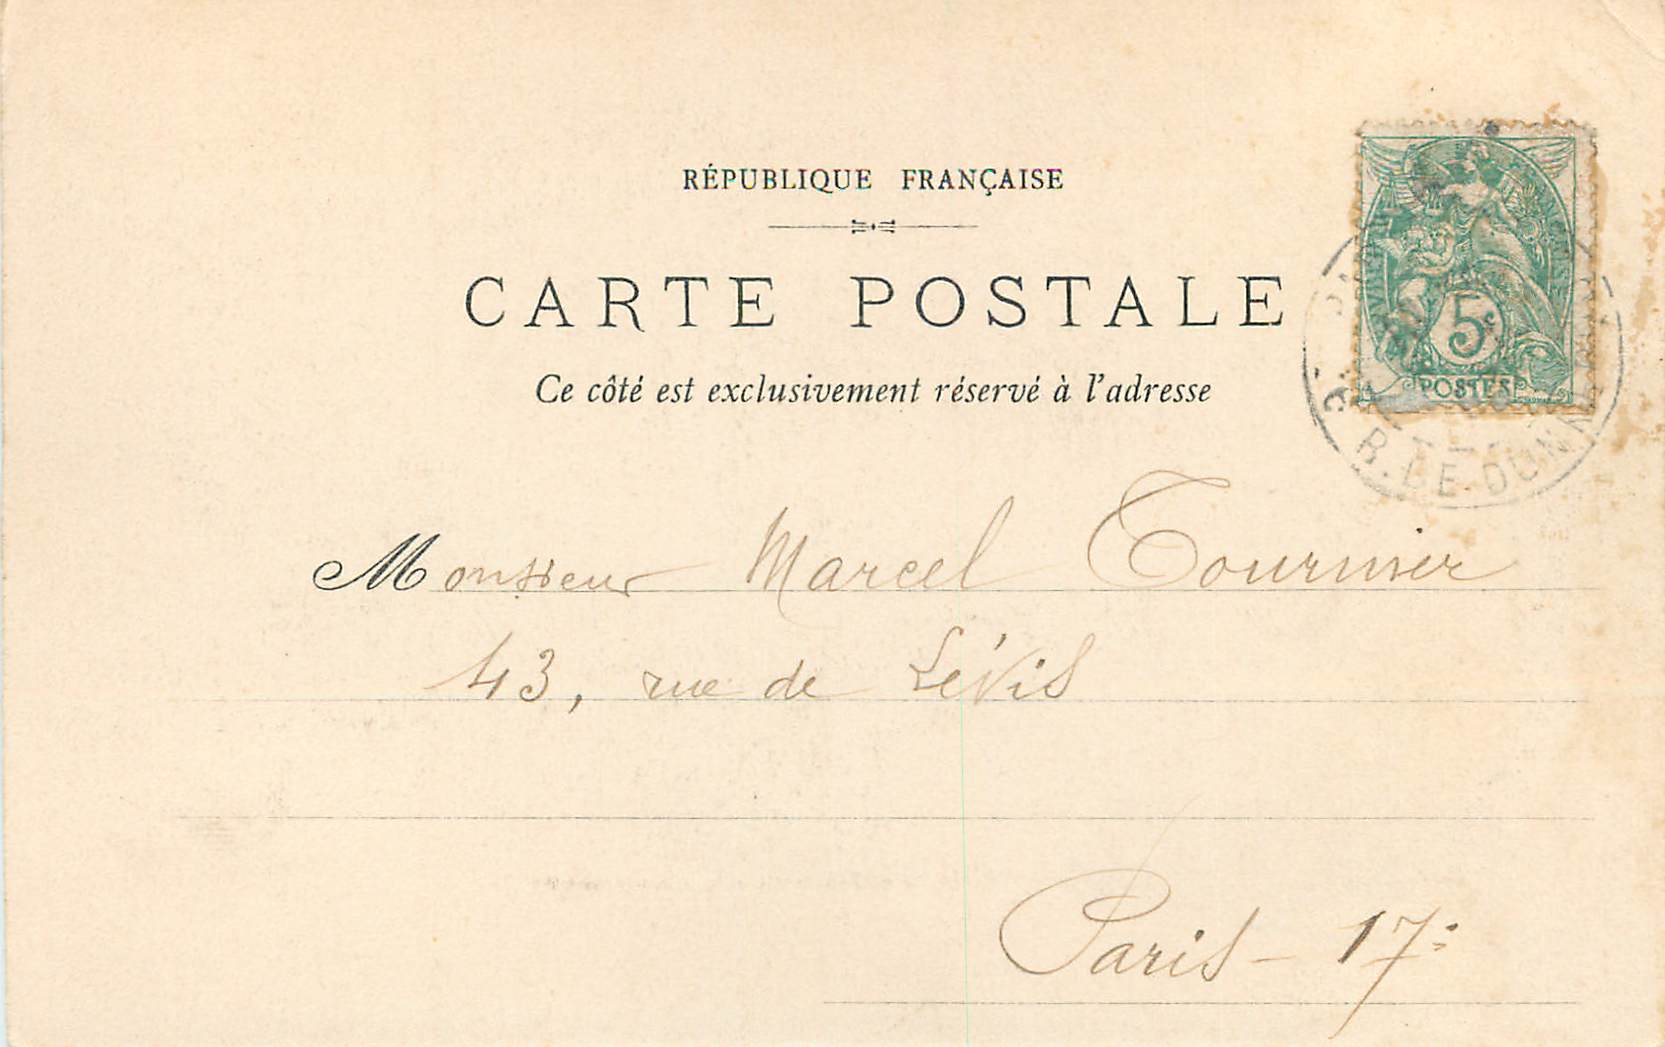 RÉPUBLIQUE FRANÇAISE
CARTE POSTALE
Ce côté est exclusivement réservé à l'adresse
5c
POSTES
R. DE DUNK
Monsieur Marcel Tournier
43, rue de Lévis
Paris - 17e